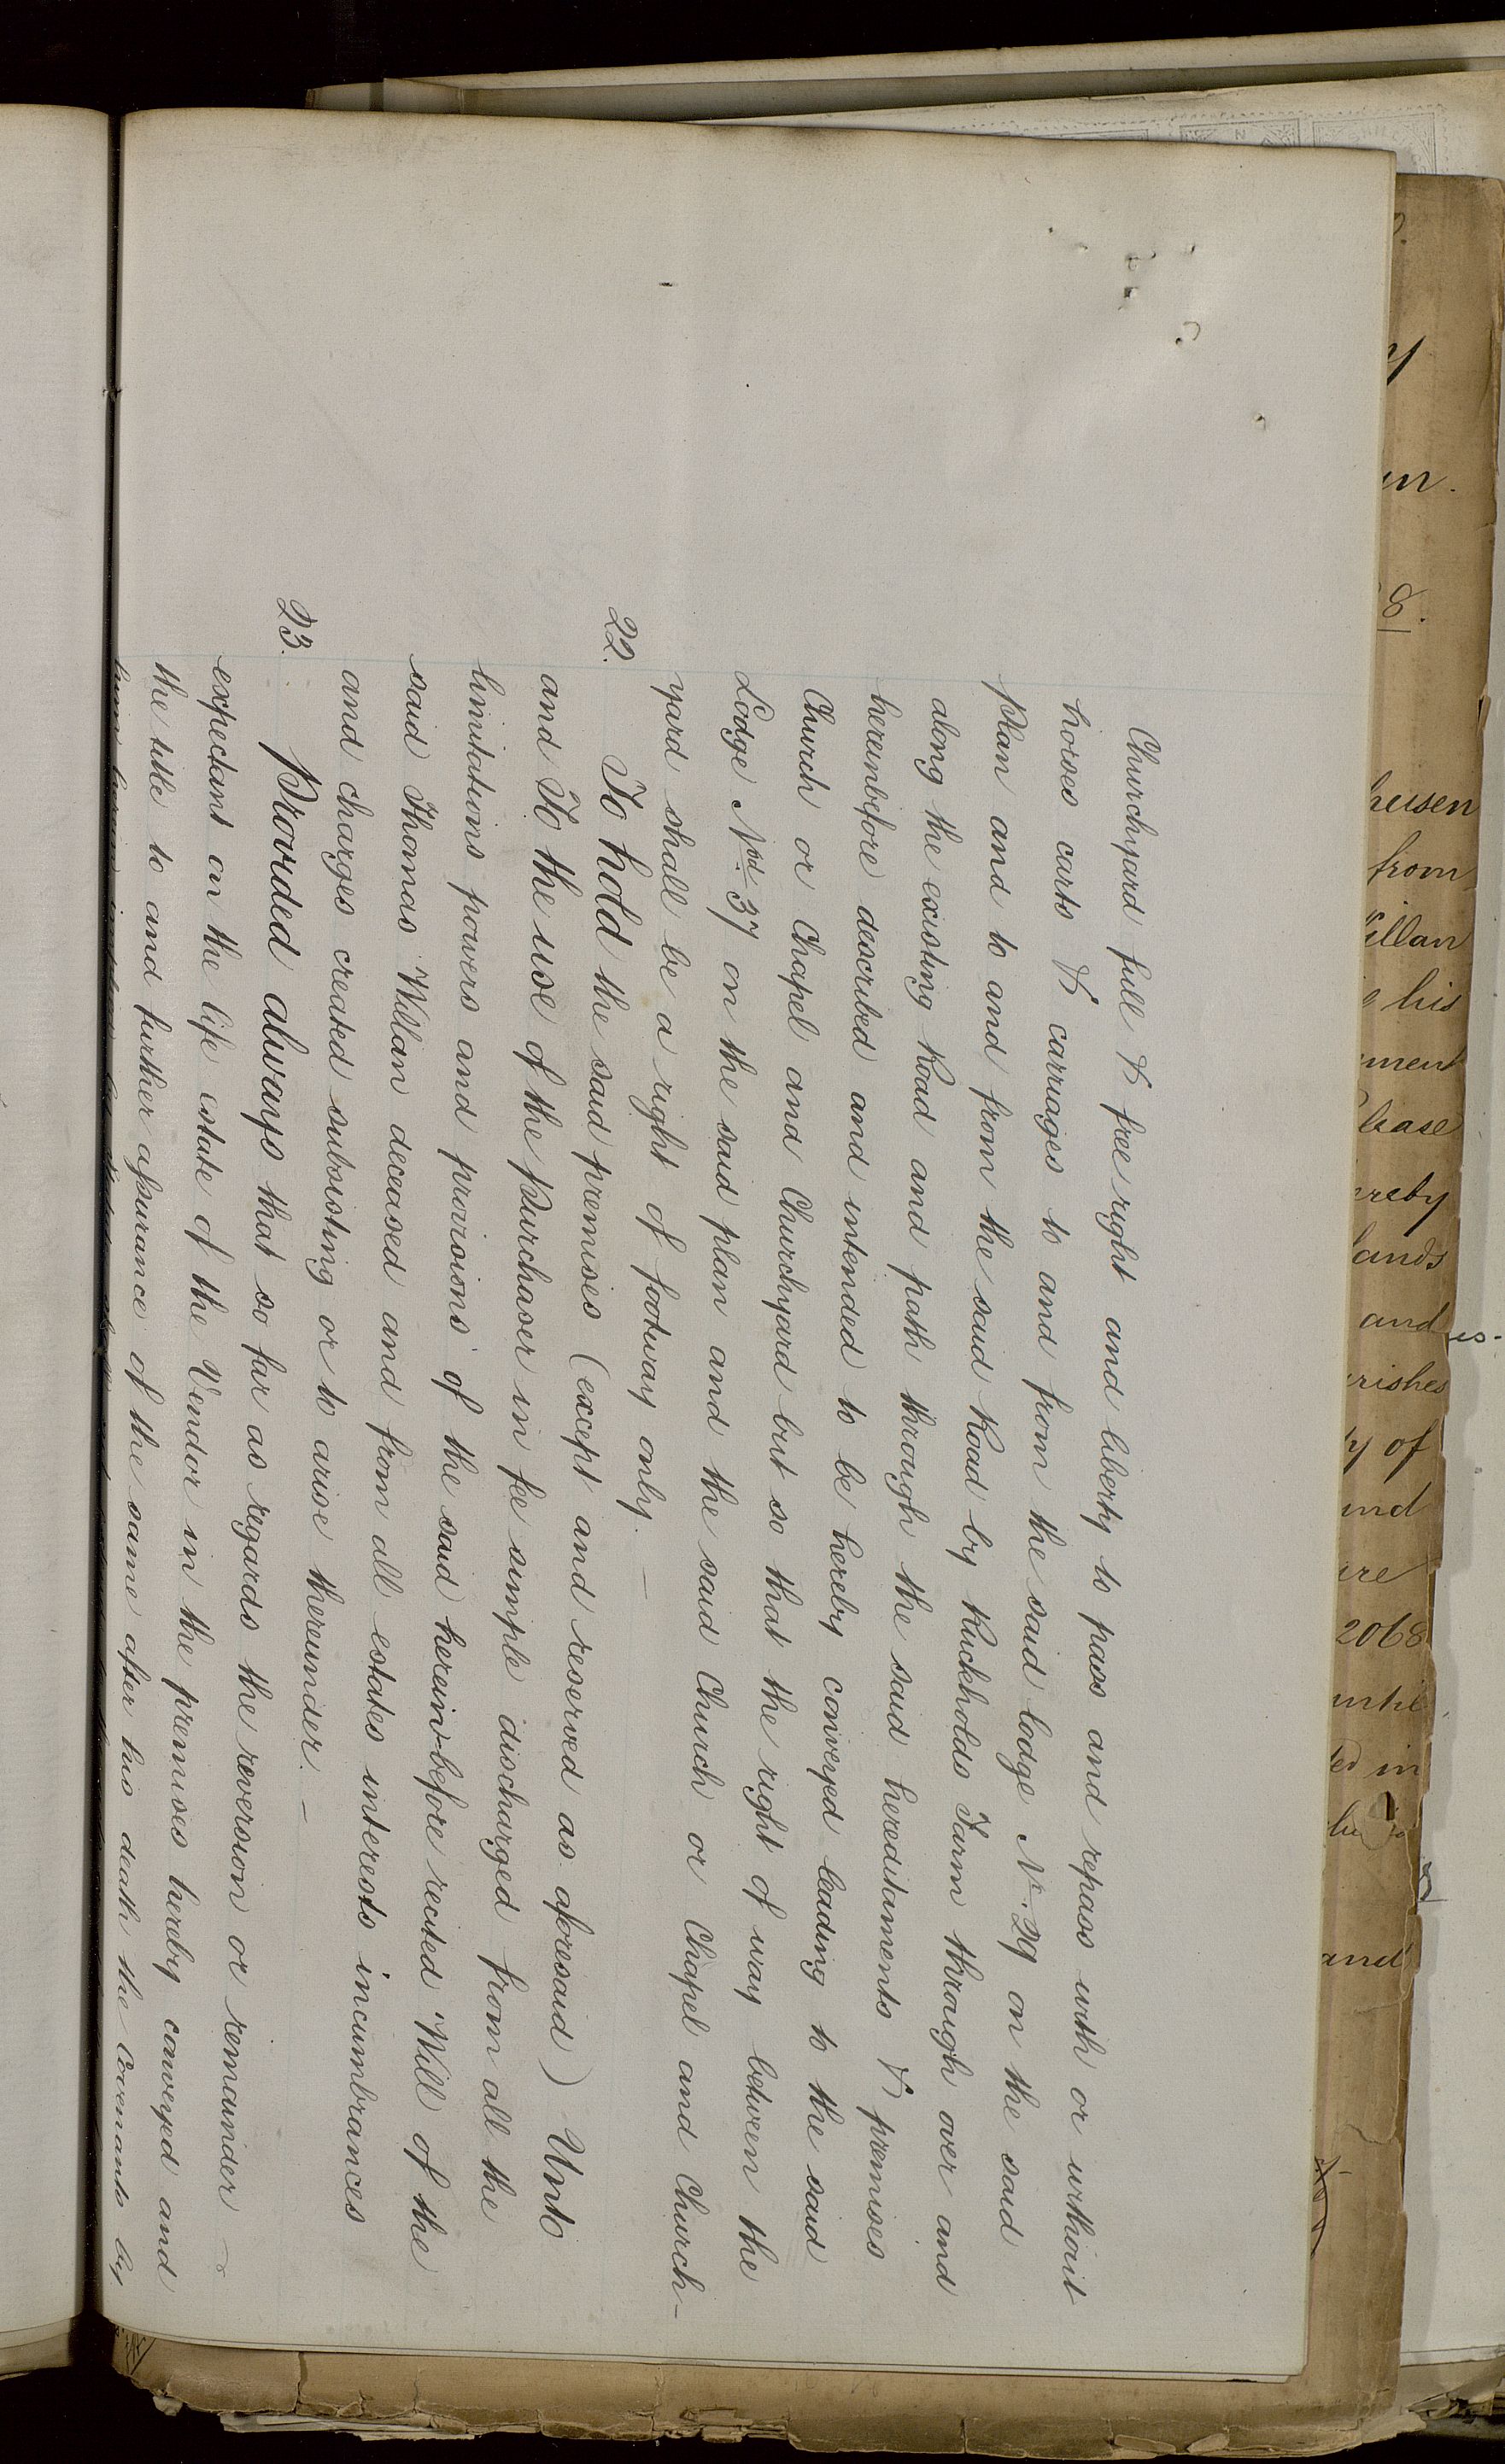 Churchyard full & free right and liberty to pass and repass with or without
horses carts & carriages to and from the said lodge No. 29 on the said
Plan and to and from the said Road by Ruckholds Farm through over and
along the existing Road and path through the said hereditaments & premises
hereinbefore described and intended to be hereby conveyed leading to the said
Church or Chapel and Churchyard but so that the right of way between the
Lodge Nod. 37 on the said plan and the said Church or Chapel and Church-
yard shall be a right of footway only. —
22. To hold the said premises (except and reserved as aforesaid) Unto
and To the use of the Purchaser in fee simple discharged from all the
limitations powers and provisions of the said hereinbefore recited Will of the
said Thomas Willan deceased and from all estates interests incumbrances
and charges created subsisting or to arise thereunder. —
23. Provided always that so far as regards the reversion or remainder
expectant on the life estate of the Vendor in the premises hereby conveyed and
the title to and further assurance of the same after his death the Covenants by
y
un.
8.
heusen
from
illan
his
ment
lease
ereby
lands
and
rishes
ty of
und
are
2068
ed in
and
es-